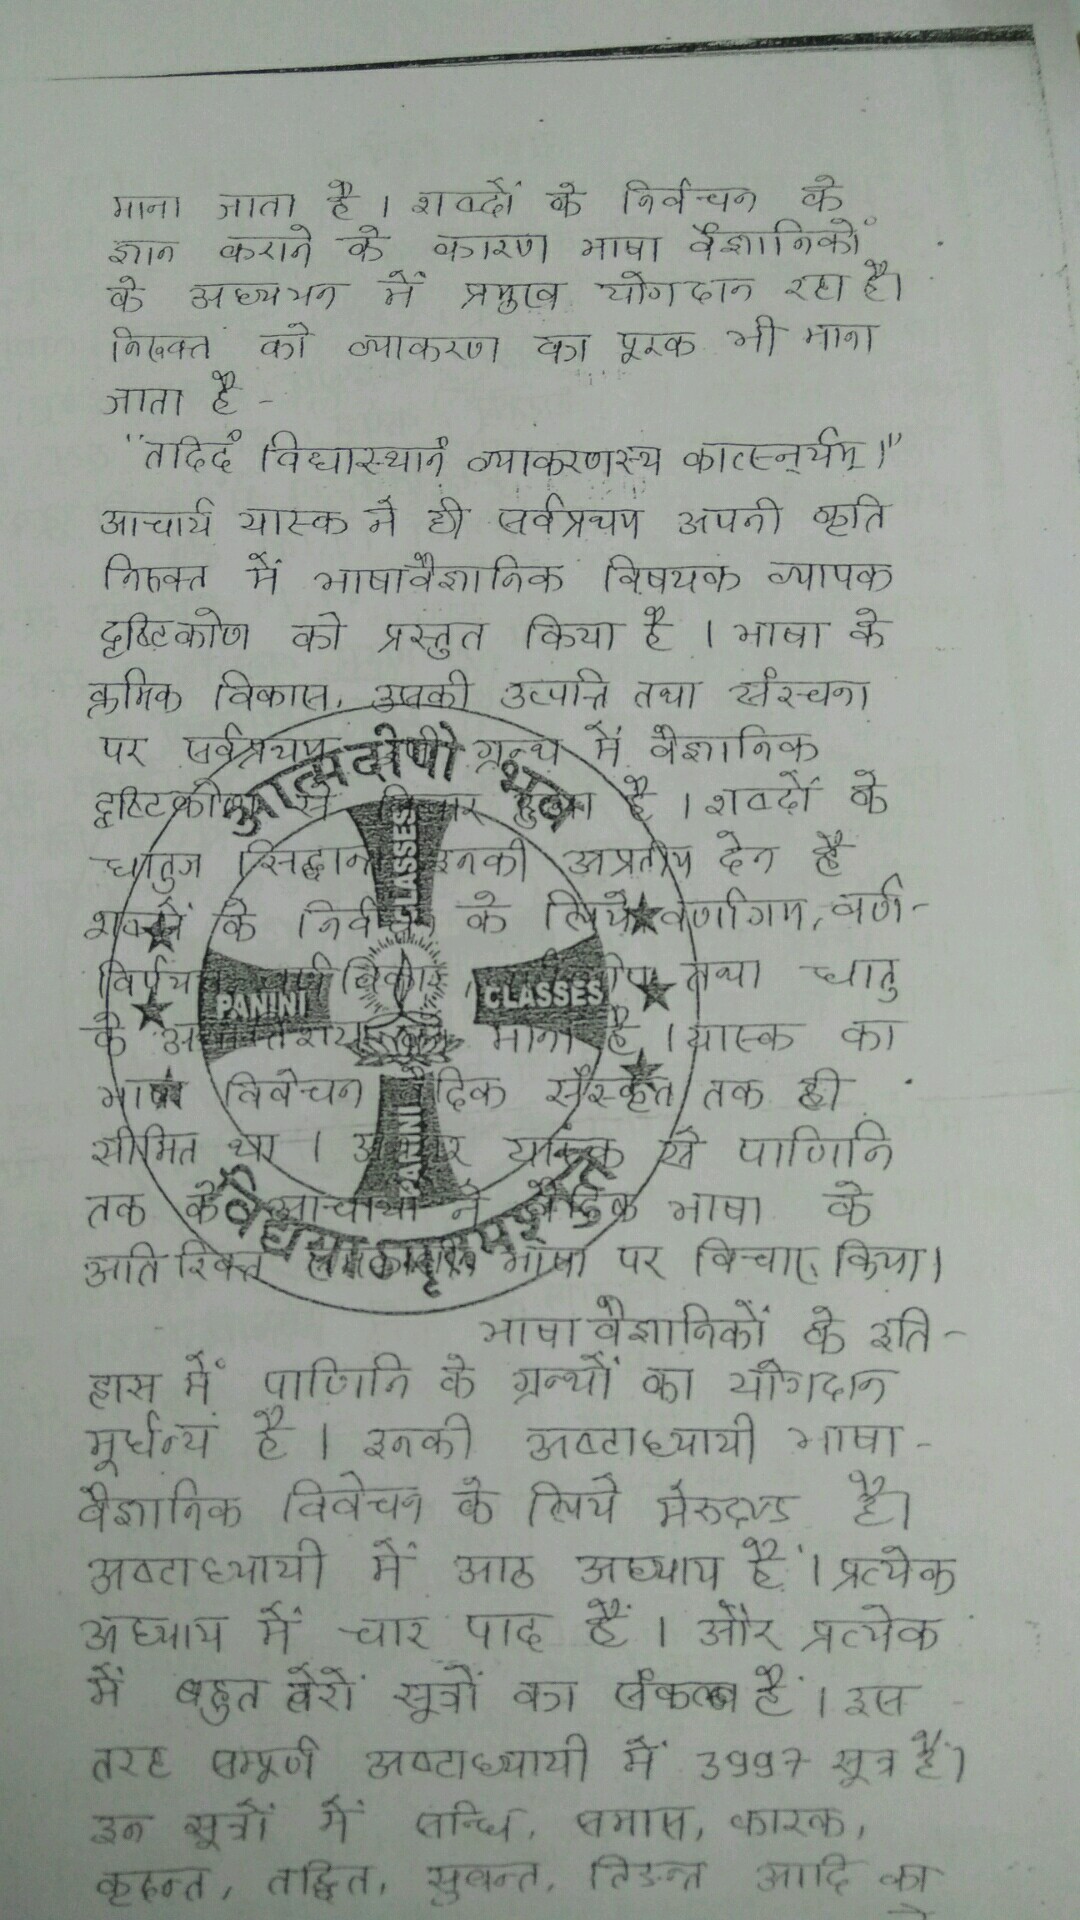 माना जाता है । शब्दों के निर्वचन के
ज्ञान कराने के कारण भाषा वैज्ञानिकों
के अध्ययन में प्रमुख योगदान रहा है।
निरुक्त को व्याकरण का पूरक भी माना
जाता है -
"तदिदं विद्यास्थानं व्याकरणस्य कात्स्न्र्यम् ।"
आचार्य यास्क ने ही सर्वप्रथम अपनी कृति
निरुक्त में भाषावैज्ञानिक विषयक व्यापक
दृष्टिकोण को प्रस्तुत किया है । भाषा के
क्रमिक विकास, उसकी उत्पत्ति तथा संरचना
पर सर्वप्रथम ग्रन्थ में वैज्ञानिक
है । शब्दों के
धातुज सिद्धान्त इनकी देन है
के के लिये वर्णागम, वर्ण-
तथा धातु
के माना है । यास्क का
भाषा विवेचन वैदिक संस्कृत तक ही
सीमित था । से पाणिनि
तक के आचार्यों ने वैदिक भाषा के
अतिरिक्त भाषा पर विचार किया।
PANINI CLASSES
CLASSES
PANINI
भाषा वैज्ञानिकों के इति-
हास में पाणिनि के ग्रन्थों का योगदान
मूर्धन्य है । इनकी अष्टाध्यायी भाषा-
वैज्ञानिक विवेचन के लिये मेरुदण्ड है।
अष्टाध्यायी में आठ अध्याय हैं । प्रत्येक
अध्याय में चार पाद हैं । और प्रत्येक
में बहुत सूत्रों का संकलन है । इस
तरह सम्पूर्ण अष्टाध्यायी में 3997 सूत्र है।
इन सूत्रों में सन्धि, समास, कारक,
कृदन्त, तद्धित, सुबन्त, तिङन्त आदि का